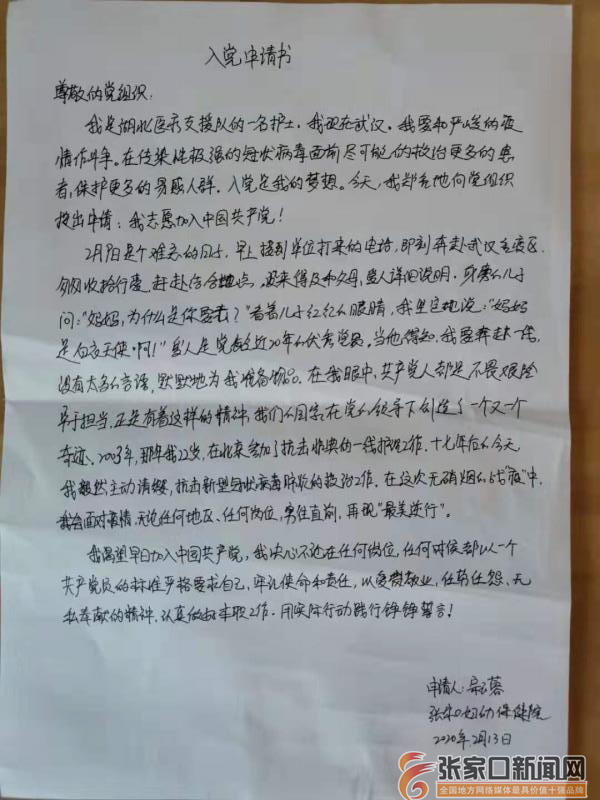 入党申请书
尊敬的党组织：
我是湖北医疗支援队的一名护士，我现在武汉。我要和严峻的疫
情作斗争。在传染性极强的冠状病毒面前尽可能的救治更多的患
者，保护更多的易感人群。入党是我的梦想。今天，我郑重地向党组织
提出申请：我志愿加入中国共产党！
2月9日是个难忘的日子，早上接到单位打来的电话，即刻奔赴武汉重疫区，
匆匆收拾行囊，赶赴集合地点，没来得及和父母，爱人详细说明，身旁的儿子
问："妈妈，为什么是你要去？"看着儿子红红的眼睛，我坚定地说："妈妈
是白衣天使啊！"爱人是党龄近20年的优秀党员，当他得知，我要奔赴一线，
没有太多的言语，默默地为我准备物品。在我眼中，共产党人都是不畏艰险
勇于担当，正是有着这样的精神，我们的国家在党的领导下创造了一个又一个
奇迹。2003年，那年我22岁，在北京参加了抗击非典的一线护理工作，十七年后的今天
我毅然主动请缨，抗击新型冠状病毒肺炎的救治工作。在这次无硝烟的战"疫"中，
我会面对疫情，无论任何地区、任何岗位，勇往直前，再现"最美逆行"。
我渴望早日加入中国共产党，我决心不论在任何岗位，任何时候都以一个
共产党员的标准严格要求自己，牢记使命和责任，以爱岗敬业，任劳任怨、无
私奉献的精神，认真做好本职工作，用实际行动践行铮铮誓言！
申请人：
张家口妇幼保健院
2020年2月13日
张家口新闻网
全国地方网络媒体最具价值十强品牌